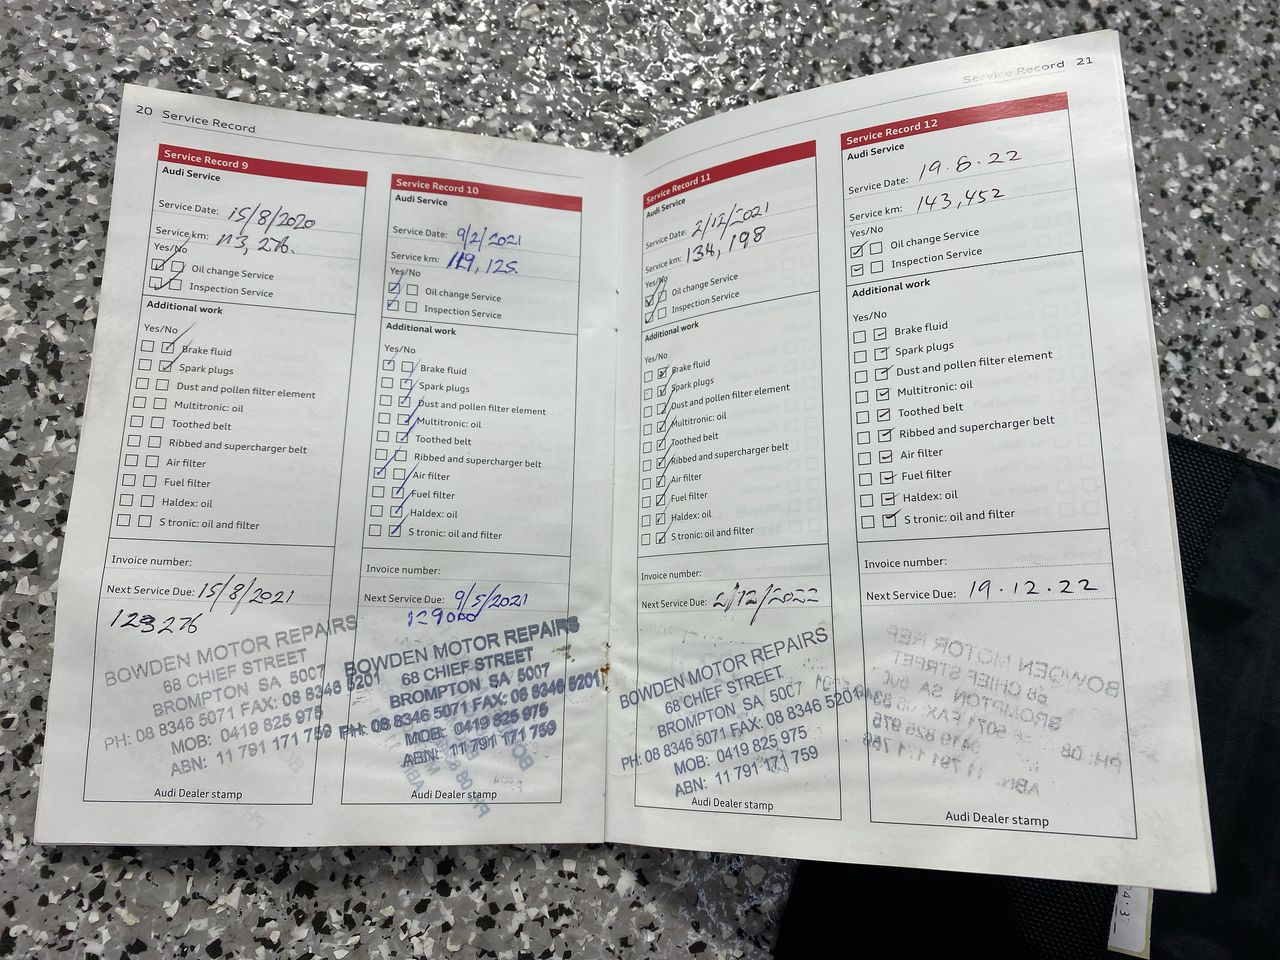 20 Service Record
Service Record 9
Audi Service
Service Date: 15/8/2020
Service km: 113,276.
Yes/No
Oil change Service
Inspection Service
Additional work
Yes/No
Brake fluid
Spark plugs
Dust and pollen filter element
Multitronic: oil
Toothed belt
Ribbed and supercharger belt
Air filter
Fuel filter
Haldex: oil
S tronic: oil and filter
Invoice number:
Next Service Due: 15/8/2021
123276
BOWDEN MOTOR REPAIRS
68 CHIEF STREET
BROMPTON SA 5007
PH: 08 8346 5071 FAX: 08 8346 5201
MOB: 0419 825 975
ABN: 11 791 171 759
Audi Dealer stamp
Service Record 10
Audi Service
Service Date: 9/2/2021
Service km: 119,125.
Yes/No
Oil change Service
Inspection Service
Additional work
Yes/No
Brake fluid
Spark plugs
Dust and pollen filter element
Multitronic: oil
Toothed belt
Ribbed and supercharger belt
Air filter
Fuel filter
Haldex: oil
S tronic: oil and filter
Invoice number:
Next Service Due: 9/5/2021
129000
BOWDEN MOTOR REPAIRS
68 CHIEF STREET
BROMPTON SA 5007
PH: 08 8346 5071 FAX: 08 8346 5201
MOB: 0419 825 975
ABN: 11 791 171 759
Audi Dealer stamp
Service Record 21
Service Record 11
Audi Service
Service Date: 2/12/2021
Service km: 134,198
Yes/No
Oil change Service
Inspection Service
Additional work
Yes/No
Brake fluid
Spark plugs
Dust and pollen filter element
Multitronic: oil
Toothed belt
Ribbed and supercharger belt
Air filter
Fuel filter
Haldex: oil
S tronic: oil and filter
Invoice number:
Next Service Due: 2/12/2022
BOWDEN MOTOR REPAIRS
68 CHIEF STREET
BROMPTON SA 5007
PH: 08 8346 5071 FAX: 08 8346 5201
MOB: 0419 825 975
ABN: 11 791 171 759
Audi Dealer stamp
Service Record 12
Audi Service
Service Date: 19.6.22
Service km: 143,452
Yes/No
Oil change Service
Inspection Service
Additional work
Yes/No
Brake fluid
Spark plugs
Dust and pollen filter element
Multitronic: oil
Toothed belt
Ribbed and supercharger belt
Air filter
Fuel filter
Haldex: oil
S tronic: oil and filter
Invoice number:
Next Service Due: 19.12.22
Audi Dealer stamp